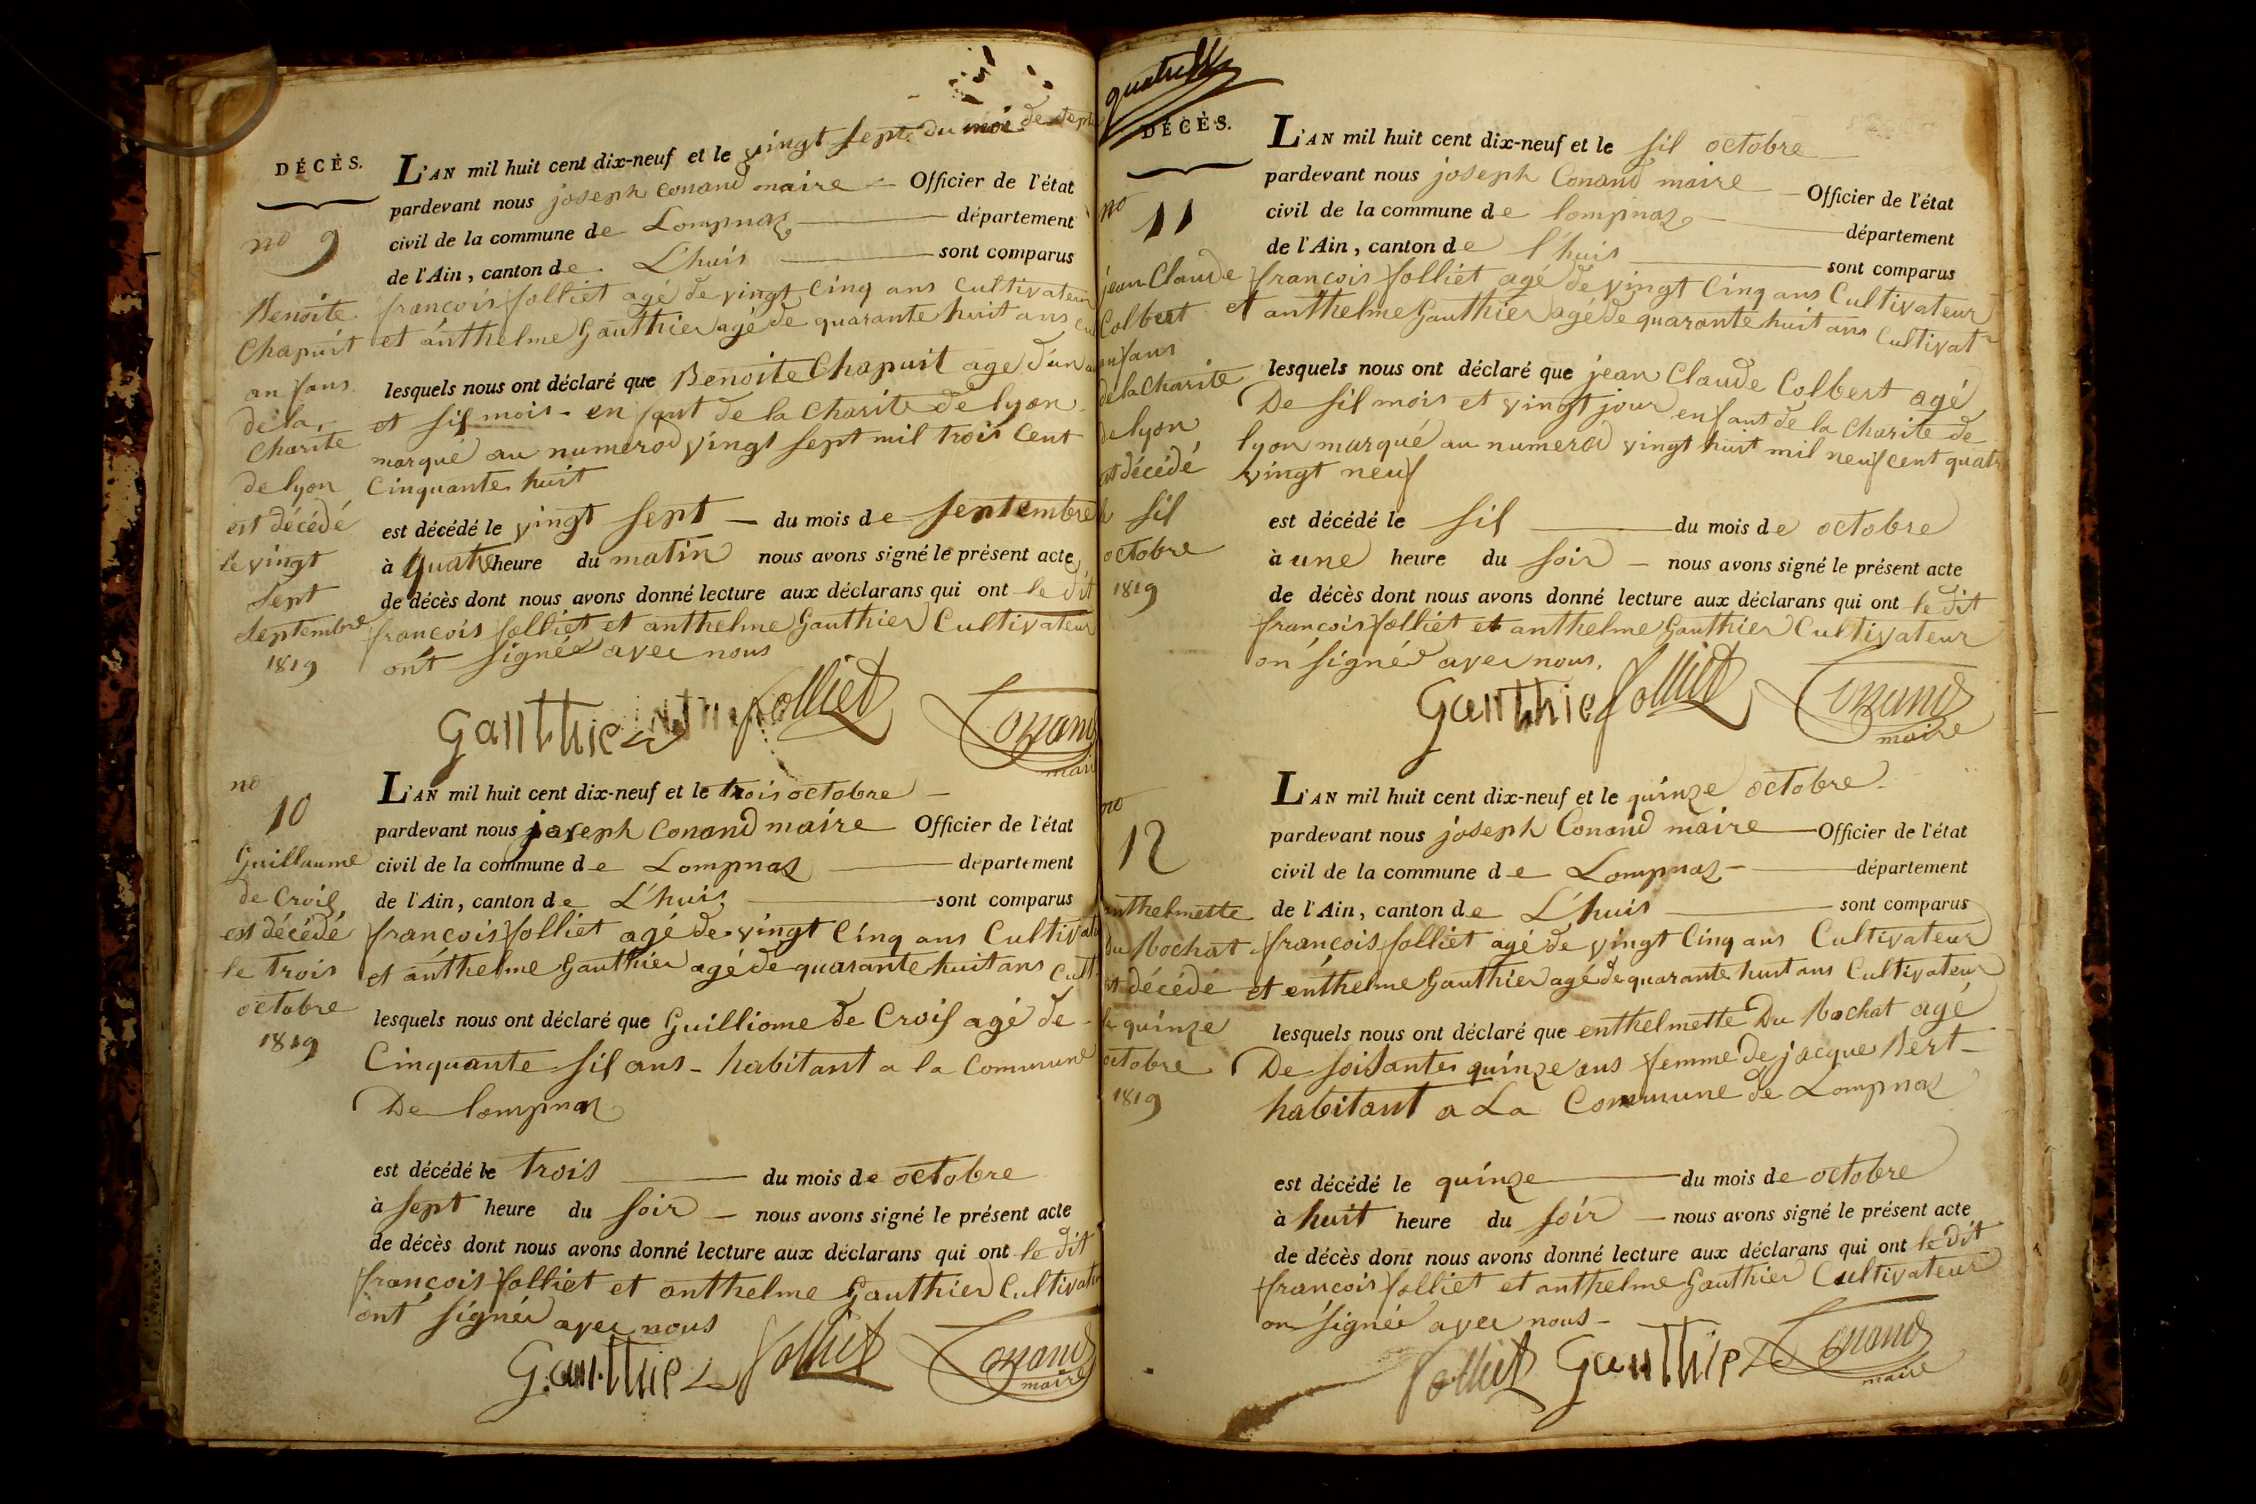 DÉCÈS.
no 9
Benoite
Chapuit
an fans
de la
Charite
de lyon
est décédé
le vingt
Sept
Septembre
1819
L'AN mil huit cent dix-neuf et le vingt sept du moi de sept
pardevant nous joseph Conand maire Officier de l'état
civil de la commune de Lompnaz département
de l'Ain, canton de L'huis sont comparus
francois folliet agé de vingt Cinq ans Cultivateur
et anthelme Gauthier agé de quarante huit ans
lesquels nous ont déclaré que Benoite Chapuit age d'un
et sil mois - en fant de la Charite de lyon
marqué au numerod vingt sept mil trois Cent
Cinquante huit
est décédé le vingt sept du mois de septembre
à quatre heure du matin nous avons signé le présent acte
de décès dont nous avons donné lecture aux déclarans qui ont le dit
francois folliet et anthelme Gauthier Cultivateur
ont signée avec nous
Gauthier folliet Conand
maire
no
10
Guillaume
de Croil
est décédé
le trois
octobre
1819
L'AN mil huit cent dix-neuf et le trois octobre
pardevant nous joseph Conand maire Officier de l'état
civil de la commune de Lompnaz département
de l'Ain, canton de L'huis sont comparus
francois folliet agé de vingt Cinq ans Cultivat
et anthelme Gauthier agé de quarante huit ans Cult
lesquels nous ont déclaré que Guilliome de Croil agé de
Cinquante sil ans - habitant a la Commune
De lompnaz
est décédé le trois du mois de octobre
à sept heure du soir nous avons signé le présent acte
de décès dont nous avons donné lecture aux déclarans qui ont le dit
francois folliet et anthelme Gauthier Cultivat
ont signée avec nous
Gauthier folliet Conand
maire
quatre
DÉCÈS.
no
11
jean Claude
Colbert
enfans
de la Charite
de lyon
est décédé
le sil
octobre
1819
L'AN mil huit cent dix-neuf et le sil octobre
pardevant nous joseph Conand maire Officier de l'état
civil de la commune de lompnaz département
de l'Ain, canton de l'huis sont comparus
francois folliet agé de vingt Cinq ans Cultivateur
et anthelme Gauthier agé de quarante huit ans Cultivatr
lesquels nous ont déclaré que jean Claude Colbert agé
De sil mois et vingt jour enfant de la Charite de
lyon marqué au numerod vingt huit mil neuf cent quatre
vingt neuf
est décédé le sil du mois de octobre
à une heure du soir nous avons signé le présent acte
de décès dont nous avons donné lecture aux déclarans qui ont le dit
francois folliet et anthelme Gauthier Cultivateur
on signée avec nous.
Gauthier folliet Conand
maire
no
12
anthelmette
Du Rochat
est décédé
le quinze
octobre
1819
L'AN mil huit cent dix-neuf et le quinze octobre
pardevant nous joseph Conand maire Officier de l'état
civil de la commune de Lompnaz département
de l'Ain, canton de L'huis sont comparus
francois folliet agé de vingt Cinq ans Cultivateur
et enthelme Gauthier agé de quarante huit ans Cultivateur
lesquels nous ont déclaré que enthelmette Du Rochat agé
De soisante quinze ans femme de jacque Bert
habitant a La Commune de Lompnaz
est décédé le quinze du mois de octobre
à huit heure du soir nous avons signé le présent acte
de décès dont nous avons donné lecture aux déclarans qui ont le dit
francois folliet et anthelme Gauthier Cultivateur
on signée avec nous
folliet Gauthier Conand
maire